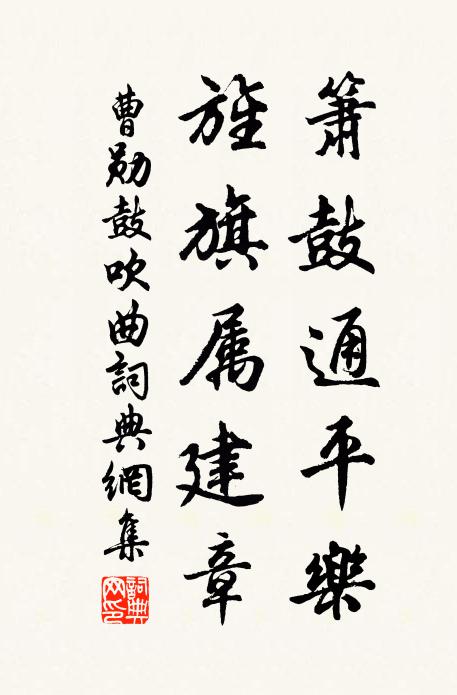 箫鼓通平樂
旌旗属建章
曹勛鼓吹曲詞典網集
詞典网印